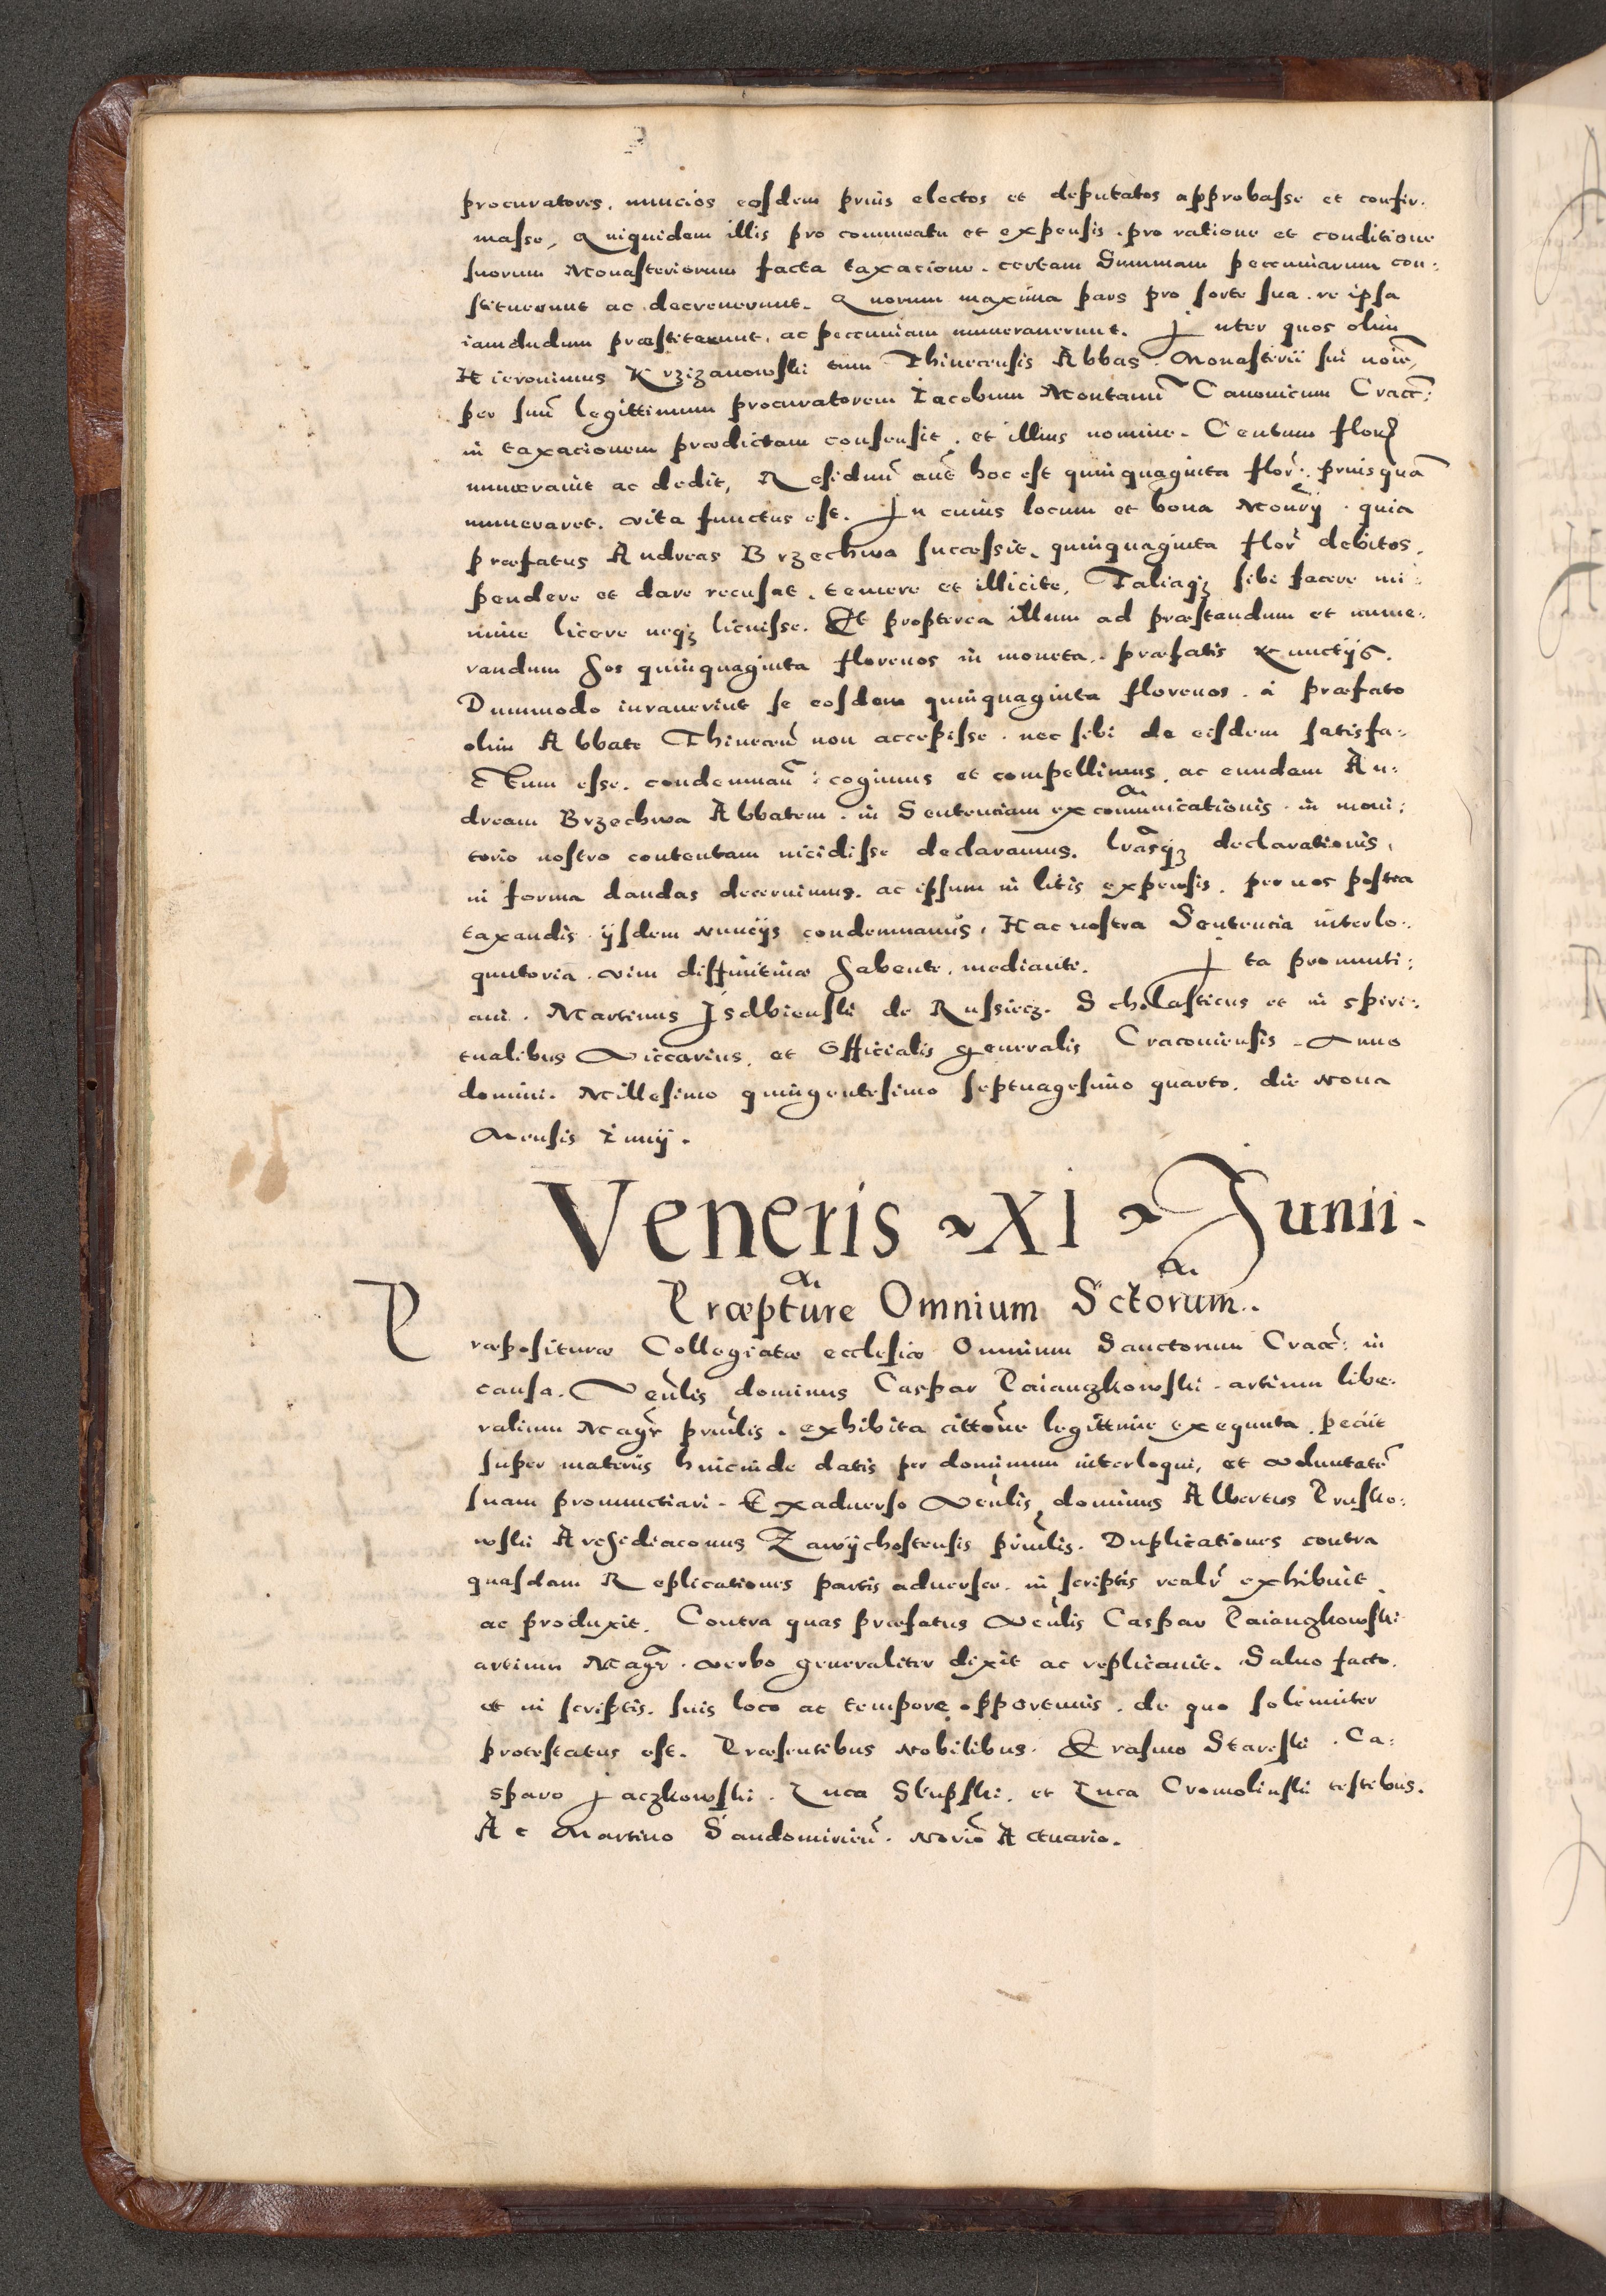 procuratores, nuncios eosdem prius electos et deputatos approbasse et confir:
masse, Quiquidem illis pro commeatu et expensis. pro ratione et conditione
suorum Monasteriorum facta taxacione. certam Summam pecuniarum con:
stituerunt ac decreuerunt. Quorum maxima pars pro sorte sua. re ipsa
iamdudum præstiterunt, ac pecuniam numerauerunt. Inter quos olim
Hieronimus Krzizanowski tum Thinecensis Abbas. Monasterii sui noie,
per suu legittimum procuratorem Iacobum Montanu Canonicum Cracc:
in taxacionem prædictam consensit. et illius nomine. Centum flor
numerauit ac dedit, Residuu aut hoc est quinquaginta flor: priusqua
numeraret. vita functus est. In cuius locum et bona Monrÿ. quia
præfatus Andreas Brzechwa successit, quinquaginta flor debitos,
pendere et dare recusat. temere et illicite, Taliaq; sibi facere mi:
nime licere neq; licuisse. Et propterea illum ad præstandum et nume:
randum hos quinquaginta florenos in moneta. præfatis Nunctÿs.
Dummodo iurauerint se eosdem quinquaginta florenos. à præfato
olim Abbate Thinecen non accepisse. nec sibi de eisdem satisfa:
ctum esse. condemnam: cogimus et compellimus, ac eundem An:
dream Brzechwa Abbatem. in Sententiam excomunicationis. in moni:
torio nostro contentam incidisse declaramus. Lrasq; declarationis,
in forma dandas decernimus. ac ipsum in litis expensis. per nos postea
taxandis ÿsdem Nuncÿs condemnamus, Hac nostra Sentencia interlo:
quutoria. vim diffinitiuæ habente, mediante. Ita pronunti:
aui. Martinus Isdbienski de Russiecz. Scholasticus et in spiri:
tualibus Viccarius, et Officialis generalis Cracouiensis. Anno
domini. Millesimo quingentesimo septuagesimo quarto. die Nona
Mensis Iunÿ.
Veneris XI Junii.
Præpture Omnium Sctorum.
Præposituræ Collegiatæ ecclesiæ Omnium Sanctorum Cracc: in
causa. Venlis dominus Caspar Paianczkowski. artium libe:
ralium Magr prinlis. exhibita cittone legittime exequuta. peciit
super materiis hincinde datis per dominum interloqui, et voluntate
suam pronunctiari. Exaduerso Venlis dominus Albertus Prusko:
wski Archidiaconus Zawÿchostensis prinlis. Duplicationes contra
quasdam Replicationes partis aduersæ. in scriptis realr exhibuit
ac produxit. Contra quas præfatus Venlis Caspar Paianczkowski
artium Magr. verbo generaliter dixit ac replicauit. Saluo facto,
et in scriptis. suis loco ac tempore opportunis. de quo solemniter
protestatus est. Præsentibus Nobilibus. Erasmo Stareski. Ca:
sparo Jaczkowski. Luca Slupski. et Luca Cromolinski testibus.
Ac Martino Sandomirien. Norio Actuario.